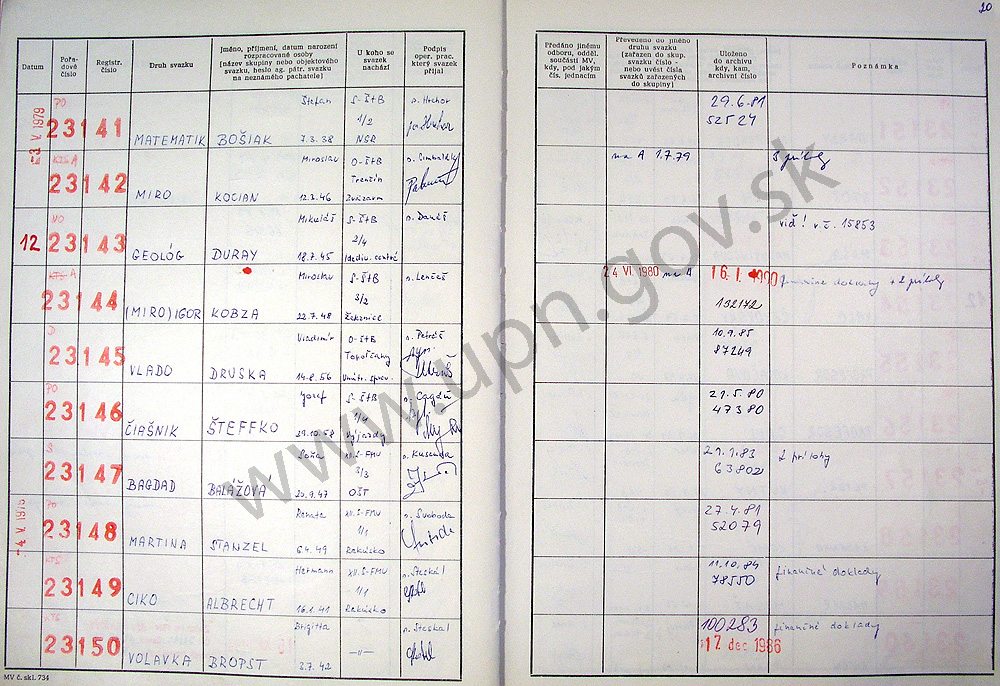 20
Datum
Pořa-
dové
číslo
Registr.
číslo
Druh svazku
Jméno, příjmení, datum narození
rozpracované osoby
[název skupiny nebo objektového
svazku, heslo ag. pátr. svazku
na neznámého pachatele]
U koho se
svazek
nachází
Podpis
oper. prac.
který svazek
přijal
Předáno jinému
odboru, odděl.
součásti MV,
kdy, pod jakým
čís. jednacím
Převedeno do jiného
druhu svazku
[zařazen do skup.
svazku číslo -
nebo uvést čísla
svazků zařazených
do skupiny]
Uloženo
do archivu
kdy, kam,
archivní číslo
Poznámka
-3 V. 1979
PO
23141
MATEMATIK
Štefan
BOŠIAK
7.3.38
S-ŠtB
1/2
NSR
29.6.81
52524
KTS A
23142
MIRO
Miroslav
KOCIAN
12.3.46
O-ŠtB
Trenčín
na A 1.7.79
12
23143
GEOLÓG
Mikuláš
DURAY
18.7.45
S-ŠtB
2/4
p. Daniš
viď! v č. 15853
KTS A
23144
(MIRO) IGOR
Miroslav
KOBZA
22.7.48
S-ŠtB
3/2
p. Lenčéš
24 VI. 1980 na A
16. I. 1990
192172
finančné doklady + 2 prílohy
D
23145
VLADO
Vladimír
DRUSKA
14.8.56
O-ŠtB
Topoľčany
10.9.85
87249
PO
23146
ČIAŠNIK
Jozef
ŠTEFFKO
S-ŠtB
1/1
Výjazdy
21.5.80
47380
S
23147
BAGDAD
BALÁŽOVÁ
20.9.47
3/3
OŠT
21.1.83
63802
2 prílohy
-4 V. 1979
PO
23148
MARTINA
Renata
STANZEL
6.4.49
XII.S-FMV
1/1
Rakúsko
p. Svoboda
27.4.81
52079
KTS
23149
CIKO
Hermann
ALBRECHT
16.1.41
XII.S-FMV
1/1
Rakúsko
p. Steskal
11.10.84
78550
finančné doklady
KTS
23150
VOLAVKA
Brigitta
BROPST
3.7.42
-"-
p. Steskal
100283
17 dec 1986
finančné doklady
MV č. skl. 734
www.upn.gov.sk